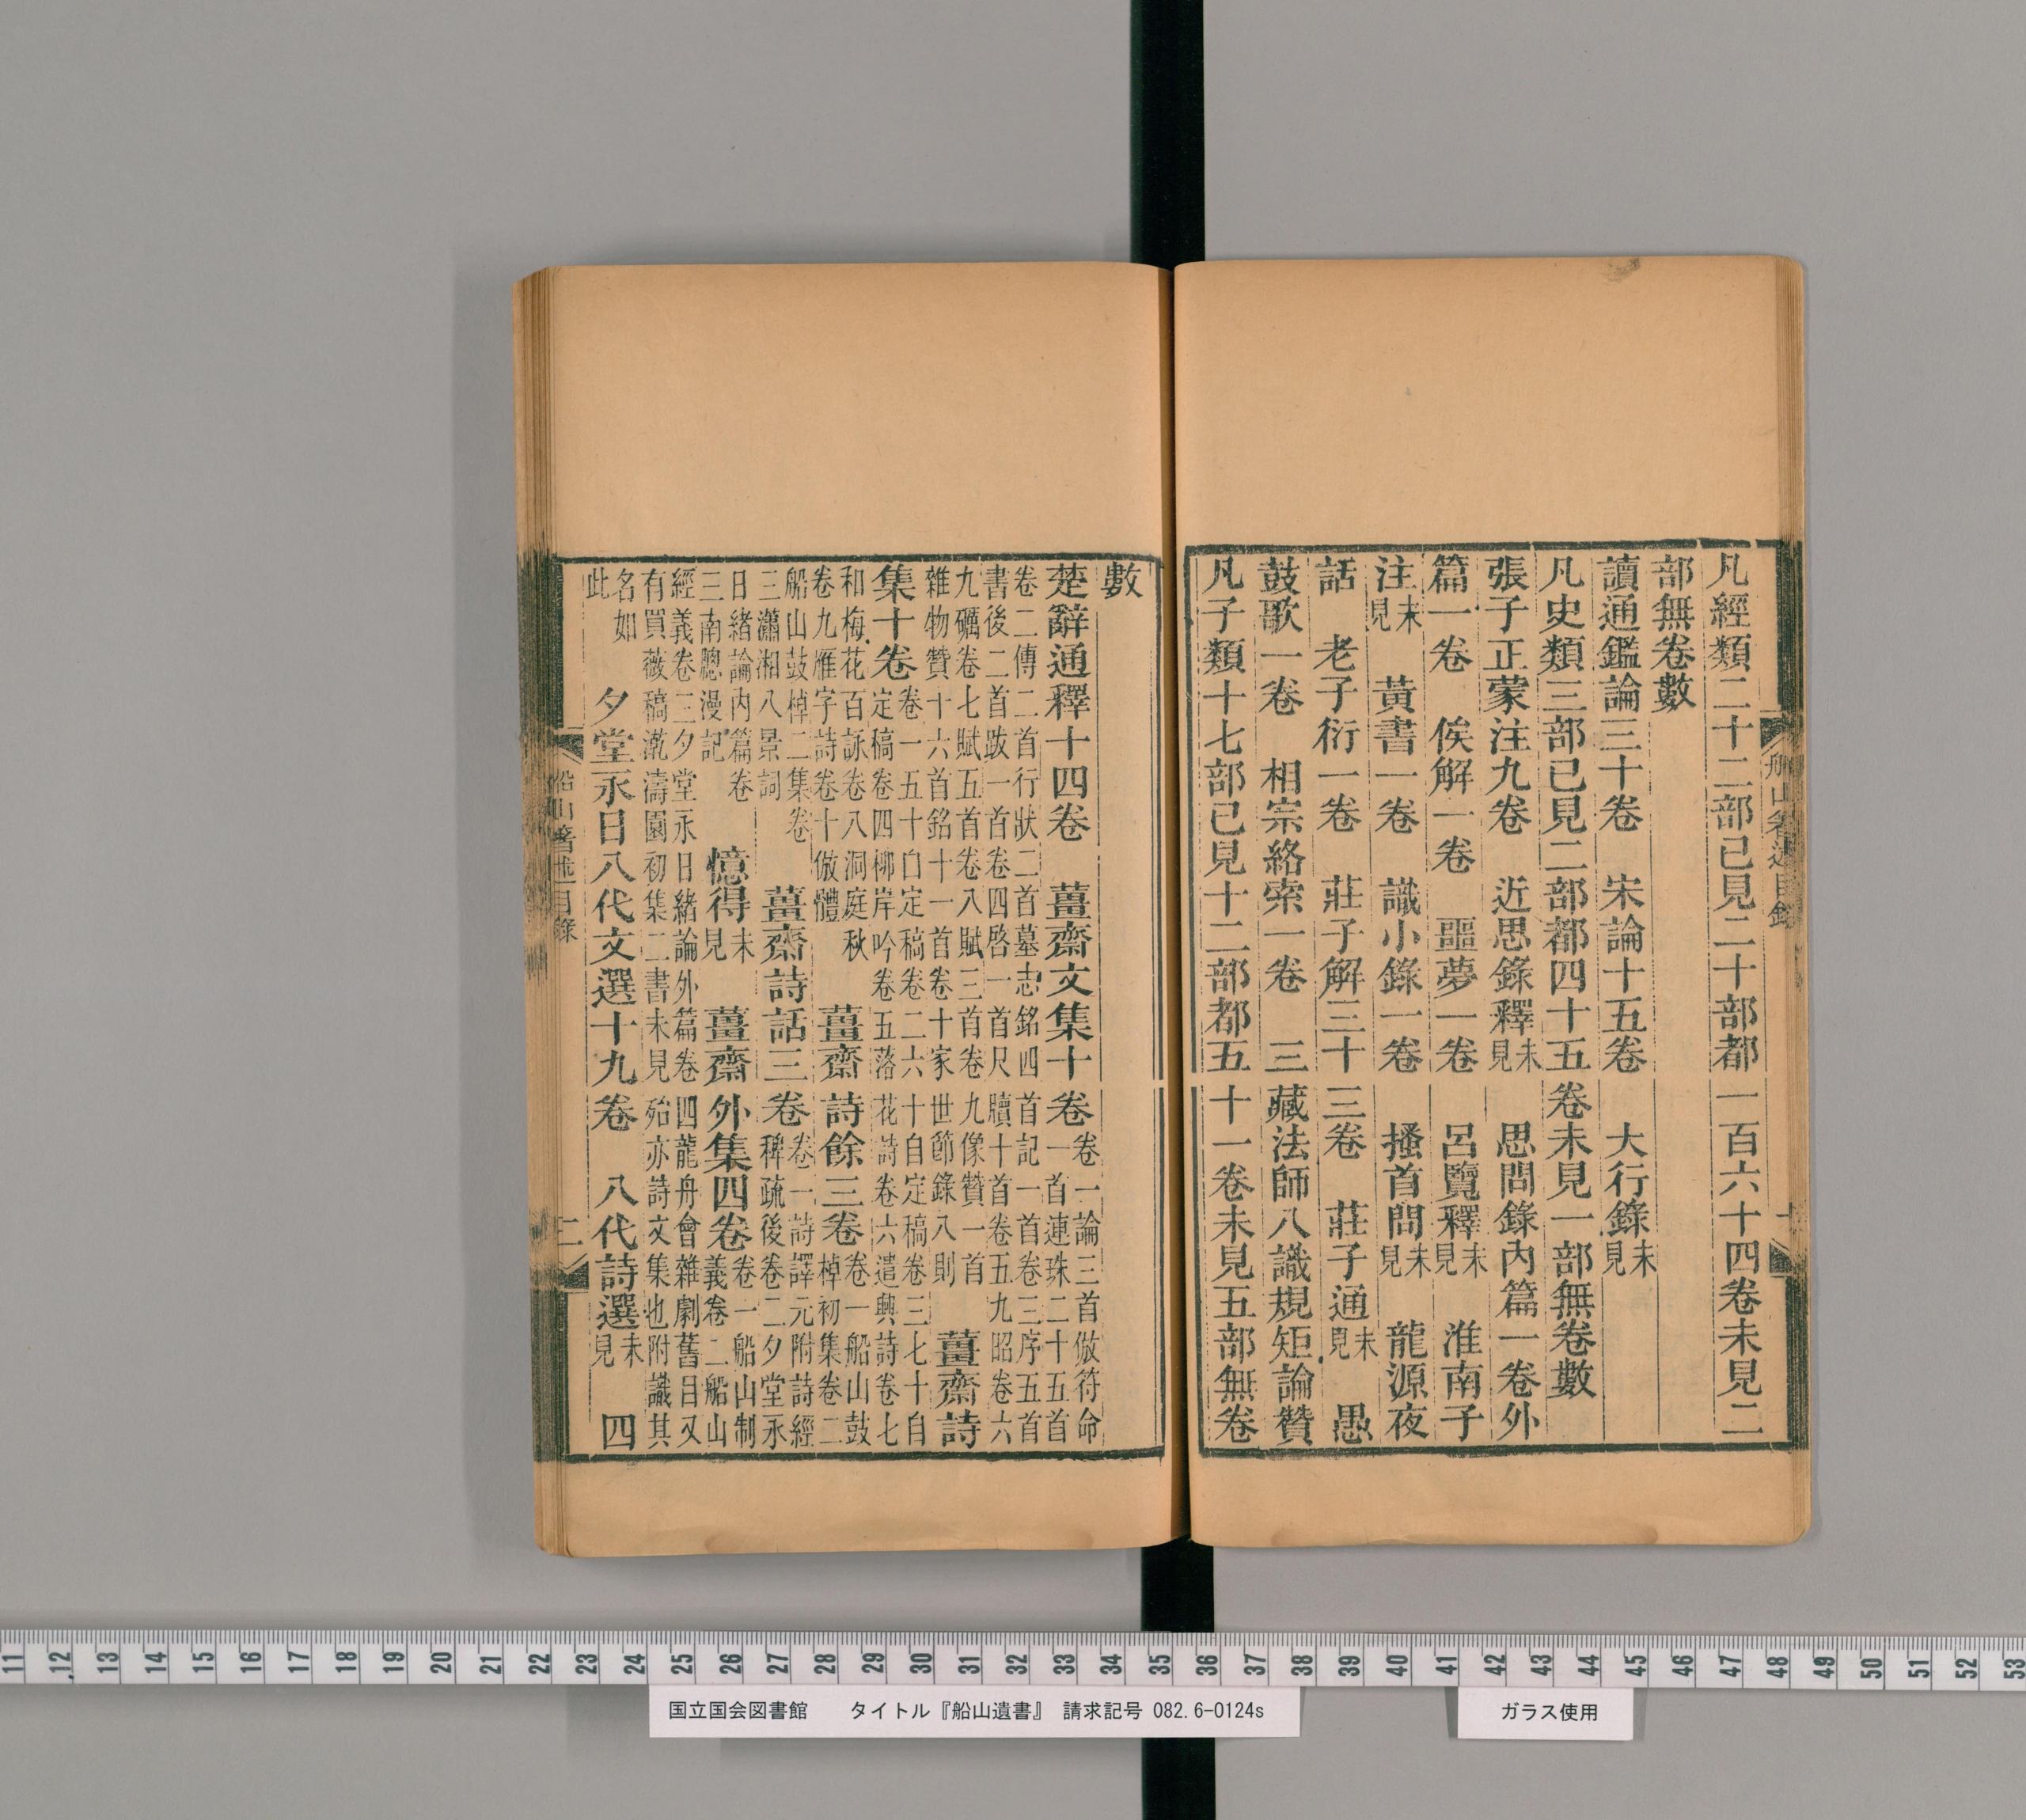 凡經類二十二部已見二十部都一百六十四卷未見二
部無卷數
讀通鑑論三十卷　宋論十五卷　大行錄未見
凡史類三部已見二部都四十五卷未見一部無卷數
張子正蒙注九卷　近思錄釋未見　思問錄內篇一卷外
篇一卷　俟解一卷　噩夢一卷　呂覽釋未見　淮南子
注未見　黃書一卷　識小錄一卷　搔首問未見　龍源夜
話　老子衍一卷　莊子解三十三卷　莊子通未見　愚
鼓歌一卷　相宗絡索一卷　三藏法師八識規矩論贊
凡子類十七部已見十二部都五十一卷未見五部無卷
數
楚辭通釋十四卷　薑齋文集十卷卷一論三首倣符命
一首連珠二十五首
卷二傳二首行狀二首墓志銘四首記一首卷三序五首
書後二首跋一首卷四啓一首尺牘十首卷五九昭卷六
九礪卷七賦五首卷八賦三首卷九像贊一首
雜物贊十六首銘十一首卷十家世節錄八則　薑齋詩
集十卷卷一五十自定稿卷二六十自定稿卷三七十自
定稿卷四柳岸吟卷五落花詩卷六遣興詩卷七
和梅花百詠卷八洞庭秋
卷九雁字詩卷十倣體　薑齋詩餘三卷卷一船山鼓
棹初集卷二
船山鼓棹二集卷
三瀟湘八景詞　薑齋詩話三卷卷一詩譯元附詩經
稗疏後卷二夕堂永
日緒論內篇卷
三南窗漫記　憶得未見　薑齋外集四卷卷一船山制
義卷二船山
經義卷三夕堂永日緒論外篇卷四龍舟會雜劇舊目又
有買薇稿漧濤園初集二書未見殆亦詩文集也附識其
名如
此　夕堂永日八代文選十九卷　八代詩選未見　四
船山著述目錄　二
国立国会図書館　タイトル『船山遺書』　請求記号 082.6-0124s
ガラス使用
11 12 13 14 15 16 17 18 19 20 21 22 23 24 25 26 27 28 29 30 31 32 33 34 35 36 37 38 39 40 41 42 43 44 45 46 47 48 49 50 51 52 53